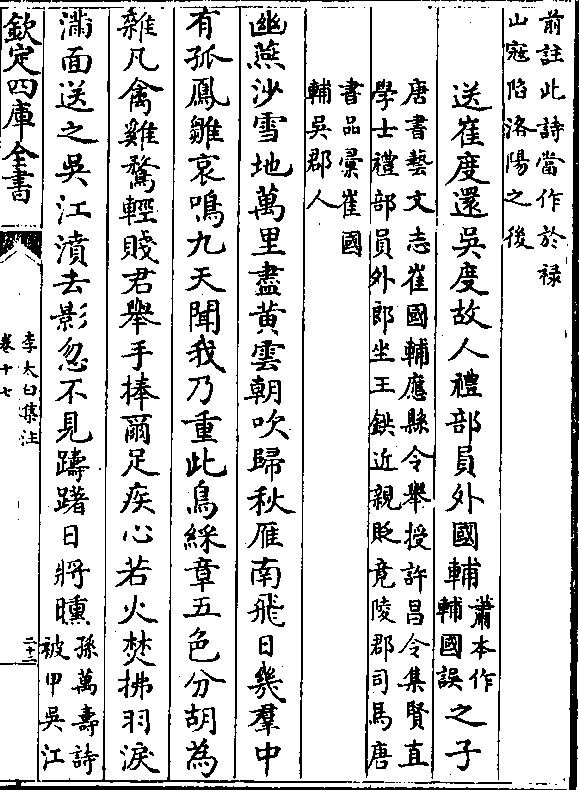 前註此詩當作於禄
山寇陷洛陽之後
送崔度還吳度故人禮部員外國輔蕭本作
輔國誤之子
唐書藝文志崔國輔應縣令舉授許昌令集賢直
學士禮部員外郎坐王鉷近親貶竟陵郡司馬唐
書品彚崔國
輔吳郡人
幽燕沙雪地萬里盡黄雲朝吹歸秋雁南飛日幾羣中
有孤鳳雛哀鳴九天聞我乃重此鳥綵章五色分胡為
雜凡禽雞鶩輕賤君舉手捧爾足疾心若火焚拂羽淚
滿面送之吳江濆去影忽不見躊躇日將曛孫萬壽詩
被甲吳江
欽定四庫全書
李太白集注
卷十七
二十二